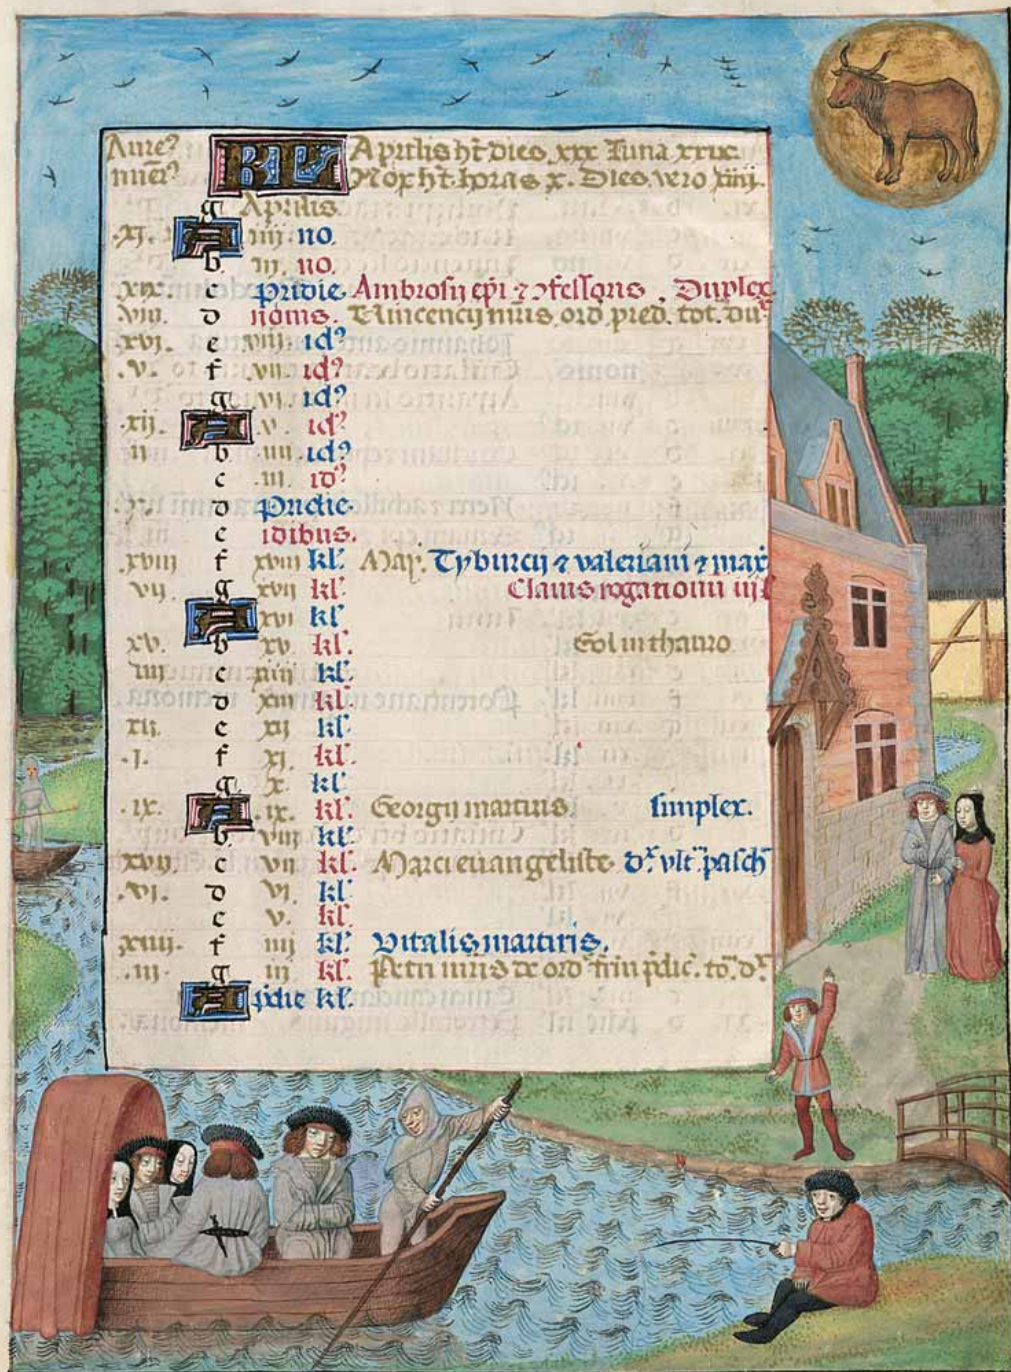 Aure⁹ KL Aprilis ht dies xxx Luna xxix.
nũer⁹ Nox ht horas x. Dies vero xiiii.
g Aprilis
.xj. A iiii no.
b. iii. no.
xix. c pridie Ambrosij epi ⁊ ↄfessoris. Duplex
viii. d nonis. Vincencij mr̃is. ord. pred. tot. du
xvi. e viii id⁹
.v. f .vii. id⁹
g vi. id⁹
.xij. A .v. id⁹
ii b iiii id⁹
c .iii. id⁹
d Pridie
e idibus.
xviii f xviii kl. May. Tyburcij ⁊ valeriani ⁊ max
.vij. g xvij kl. Clauis rogationu iij
A xvi kl
xv. b xv. kl. Sol in thauro
iiii c xiiii kl.
d xiii kl.
xij. e xij kl.
.j. f xj. kl.
g x. kl.
.ix. A .ix. kl. Georgij martiris. simplex.
b. viii kl.
xvij. c vii kl. Marci euangeliste d'x vlt pasch
.vj. d vj. kl.
e v. kl.
xiiij. f iiij kl. Vitalis martiris.
.iii. g iii kl. Petri mr̃is de ord frm p̃dic. to. d'x
A p̃die kl.